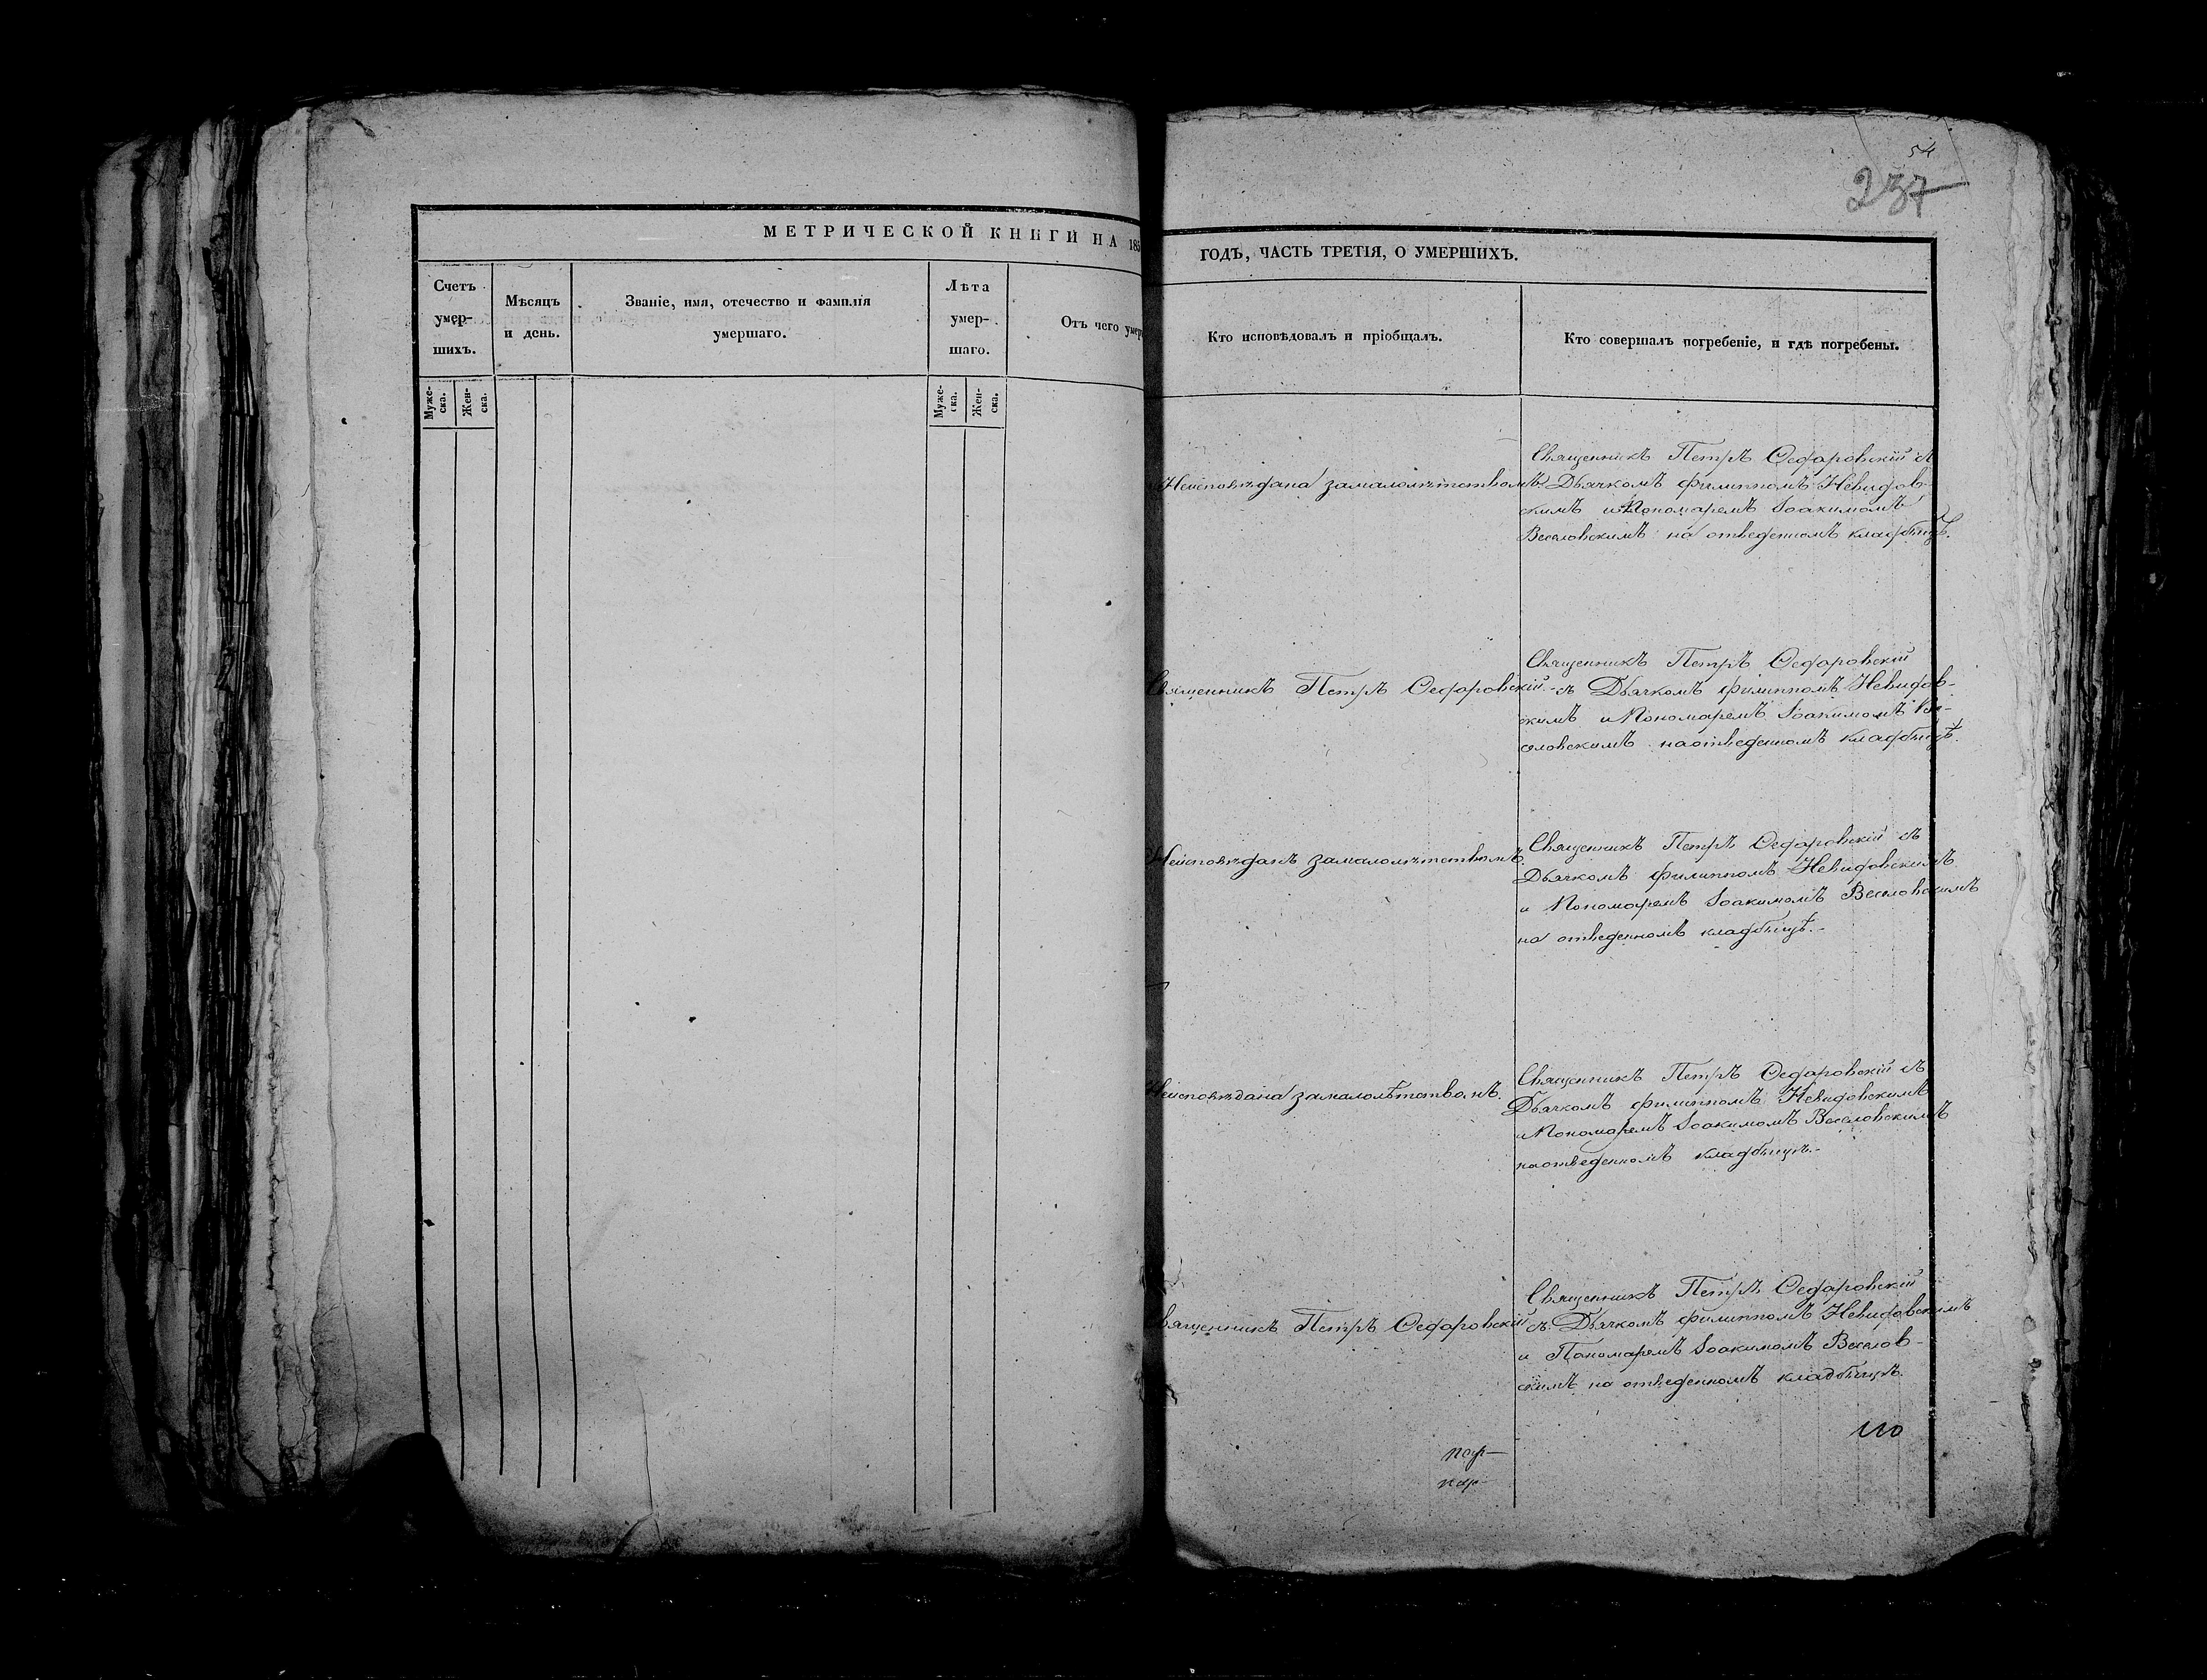 54
237
МЕТРИЧЕСКОЙ КНИГИ НА 185
Счетъ умер-шихъ.
Мѣсяцъ и день.
Званіе, имя, отечество и фамилія умершаго.
Лѣта умер-шаго.
Отъ чего умер
Муже-ска.
Жен-ска.
Муже-ска.
Жен-ска.
ГОДЪ, ЧАСТЬ ТРЕТІЯ, О УМЕРШИХЪ.
Кто исповѣдовалъ и пріобщалъ.
Кто совершалъ погребеніе, и гдѣ погребены.
Неисповѣдана замалолѣтствомъ
Священникъ Петръ Осфаровскій съ
Дьячкомъ Филиппомъ Невидов-
скимъ и Пономаремъ Іоакимомъ
Веселовскимъ на отведенномъ кладбищѣ.
Священникъ Петръ Осфаровскій
Священникъ Петръ Осфаровскій
съ Дьячкомъ Филиппомъ Невидов-
скимъ и Пономаремъ Іоакимомъ Ве-
селовскимъ наотведенномъ кладбищѣ.
Неисповѣданъ замалолѣтствомъ.
Священникъ Петръ Осфаровскій съ
Дьячкомъ Филиппомъ Невидовскимъ
и Пономаремъ Іоакимомъ Веселовскимъ
на отведенномъ кладбищѣ.-
Неисповѣдана замалолѣтствомъ.
Священникъ Петръ Осфаровскій съ
Дьячкомъ Филиппомъ Невидовскимъ
и Пономаремъ Іоакимомъ Веселовскимъ
наотведенномъ кладбищѣ.-
вященникъ Петръ Осфаровскій
Священникъ Петръ Осфаровскій
съ Дьячкомъ Филиппомъ Невидовскимъ
и Пономаремъ Іоакимомъ Веселов-
скимъ на отведенномъ кладбищѣ.